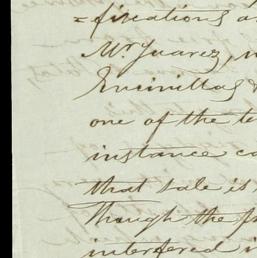 =fications a
Mr. Juarez,
Encinillas &
one of the te
instance ca
that sale is
Though the fr
interfered i